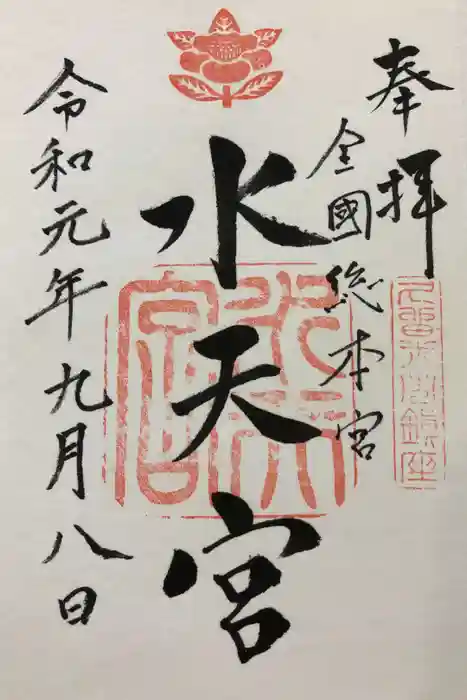 奉拝
全國総本宮
水天宮
令和元年九月八日
水天宮